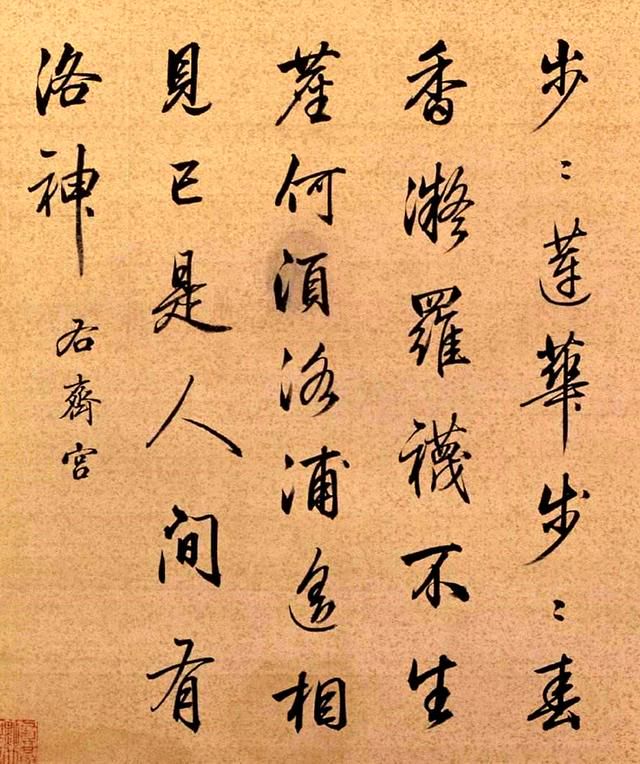 步〻蓮華步〻春
香凝羅襪不生
塵何湏洛浦遙相
見已是人間有
洛神
右齊宮